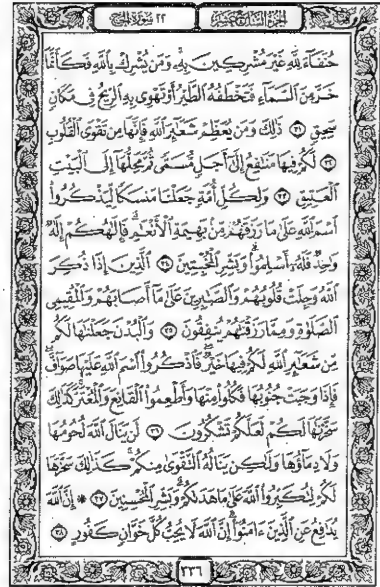 الجزء السابع عشر ٢٢ سورة الحج
حُنَفَآءَ لِلَّهِ غَيۡرَ مُشۡرِكِينَ بِهِۦۚ وَمَن يُشۡرِكۡ بِٱللَّهِ فَكَأَنَّمَا
خَرَّ مِنَ ٱلسَّمَآءِ فَتَخۡطَفُهُ ٱلطَّيۡرُ أَوۡ تَهۡوِي بِهِ ٱلرِّيحُ فِي مَكَانٖ
سَحِيقٖ ٣١ ذَٰلِكَۖ وَمَن يُعَظِّمۡ شَعَٰٓئِرَ ٱللَّهِ فَإِنَّهَا مِن تَقۡوَى ٱلۡقُلُوبِ
٣٢ لَكُمۡ فِيهَا مَنَٰفِعُ إِلَىٰٓ أَجَلٖ مُّسَمّٗى ثُمَّ مَحِلُّهَآ إِلَى ٱلۡبَيۡتِ
ٱلۡعَتِيقِ ٣٣ وَلِكُلِّ أُمَّةٖ جَعَلۡنَا مَنسَكٗا لِّيَذۡكُرُواْ
ٱسۡمَ ٱللَّهِ عَلَىٰ مَا رَزَقَهُم مِّنۢ بَهِيمَةِ ٱلۡأَنۡعَٰمِۗ فَإِلَٰهُكُمۡ إِلَٰهٞ
وَٰحِدٞ فَلَهُۥٓ أَسۡلِمُواْۗ وَبَشِّرِ ٱلۡمُخۡبِتِينَ ٣٤ ٱلَّذِينَ إِذَا ذُكِرَ
ٱللَّهُ وَجِلَتۡ قُلُوبُهُمۡ وَٱلصَّٰبِرِينَ عَلَىٰ مَآ أَصَابَهُمۡ وَٱلۡمُقِيمِي
ٱلصَّلَوٰةِ وَمِمَّا رَزَقۡنَٰهُمۡ يُنفِقُونَ ٣٥ وَٱلۡبُدۡنَ جَعَلۡنَٰهَا لَكُم
مِّن شَعَٰٓئِرِ ٱللَّهِ لَكُمۡ فِيهَا خَيۡرٞۖ فَٱذۡكُرُواْ ٱسۡمَ ٱللَّهِ عَلَيۡهَا صَوَآفَّۖ
فَإِذَا وَجَبَتۡ جُنُوبُهَا فَكُلُواْ مِنۡهَا وَأَطۡعِمُواْ ٱلۡقَانِعَ وَٱلۡمُعۡتَرَّۚ كَذَٰلِكَ
سَخَّرۡنَٰهَا لَكُمۡ لَعَلَّكُمۡ تَشۡكُرُونَ ٣٦ لَن يَنَالَ ٱللَّهَ لُحُومُهَا
وَلَا دِمَآؤُهَا وَلَٰكِن يَنَالُهُ ٱلتَّقۡوَىٰ مِنكُمۡۚ كَذَٰلِكَ سَخَّرَهَا
لَكُمۡ لِتُكَبِّرُواْ ٱللَّهَ عَلَىٰ مَا هَدَىٰكُمۡۗ وَبَشِّرِ ٱلۡمُحۡسِنِينَ ٣٧ ۞ إِنَّ ٱللَّهَ
يُدَٰفِعُ عَنِ ٱلَّذِينَ ءَامَنُوٓاْۗ إِنَّ ٱللَّهَ لَا يُحِبُّ كُلَّ خَوَّانٖ كَفُورٍ ٣٨
٣٣٦